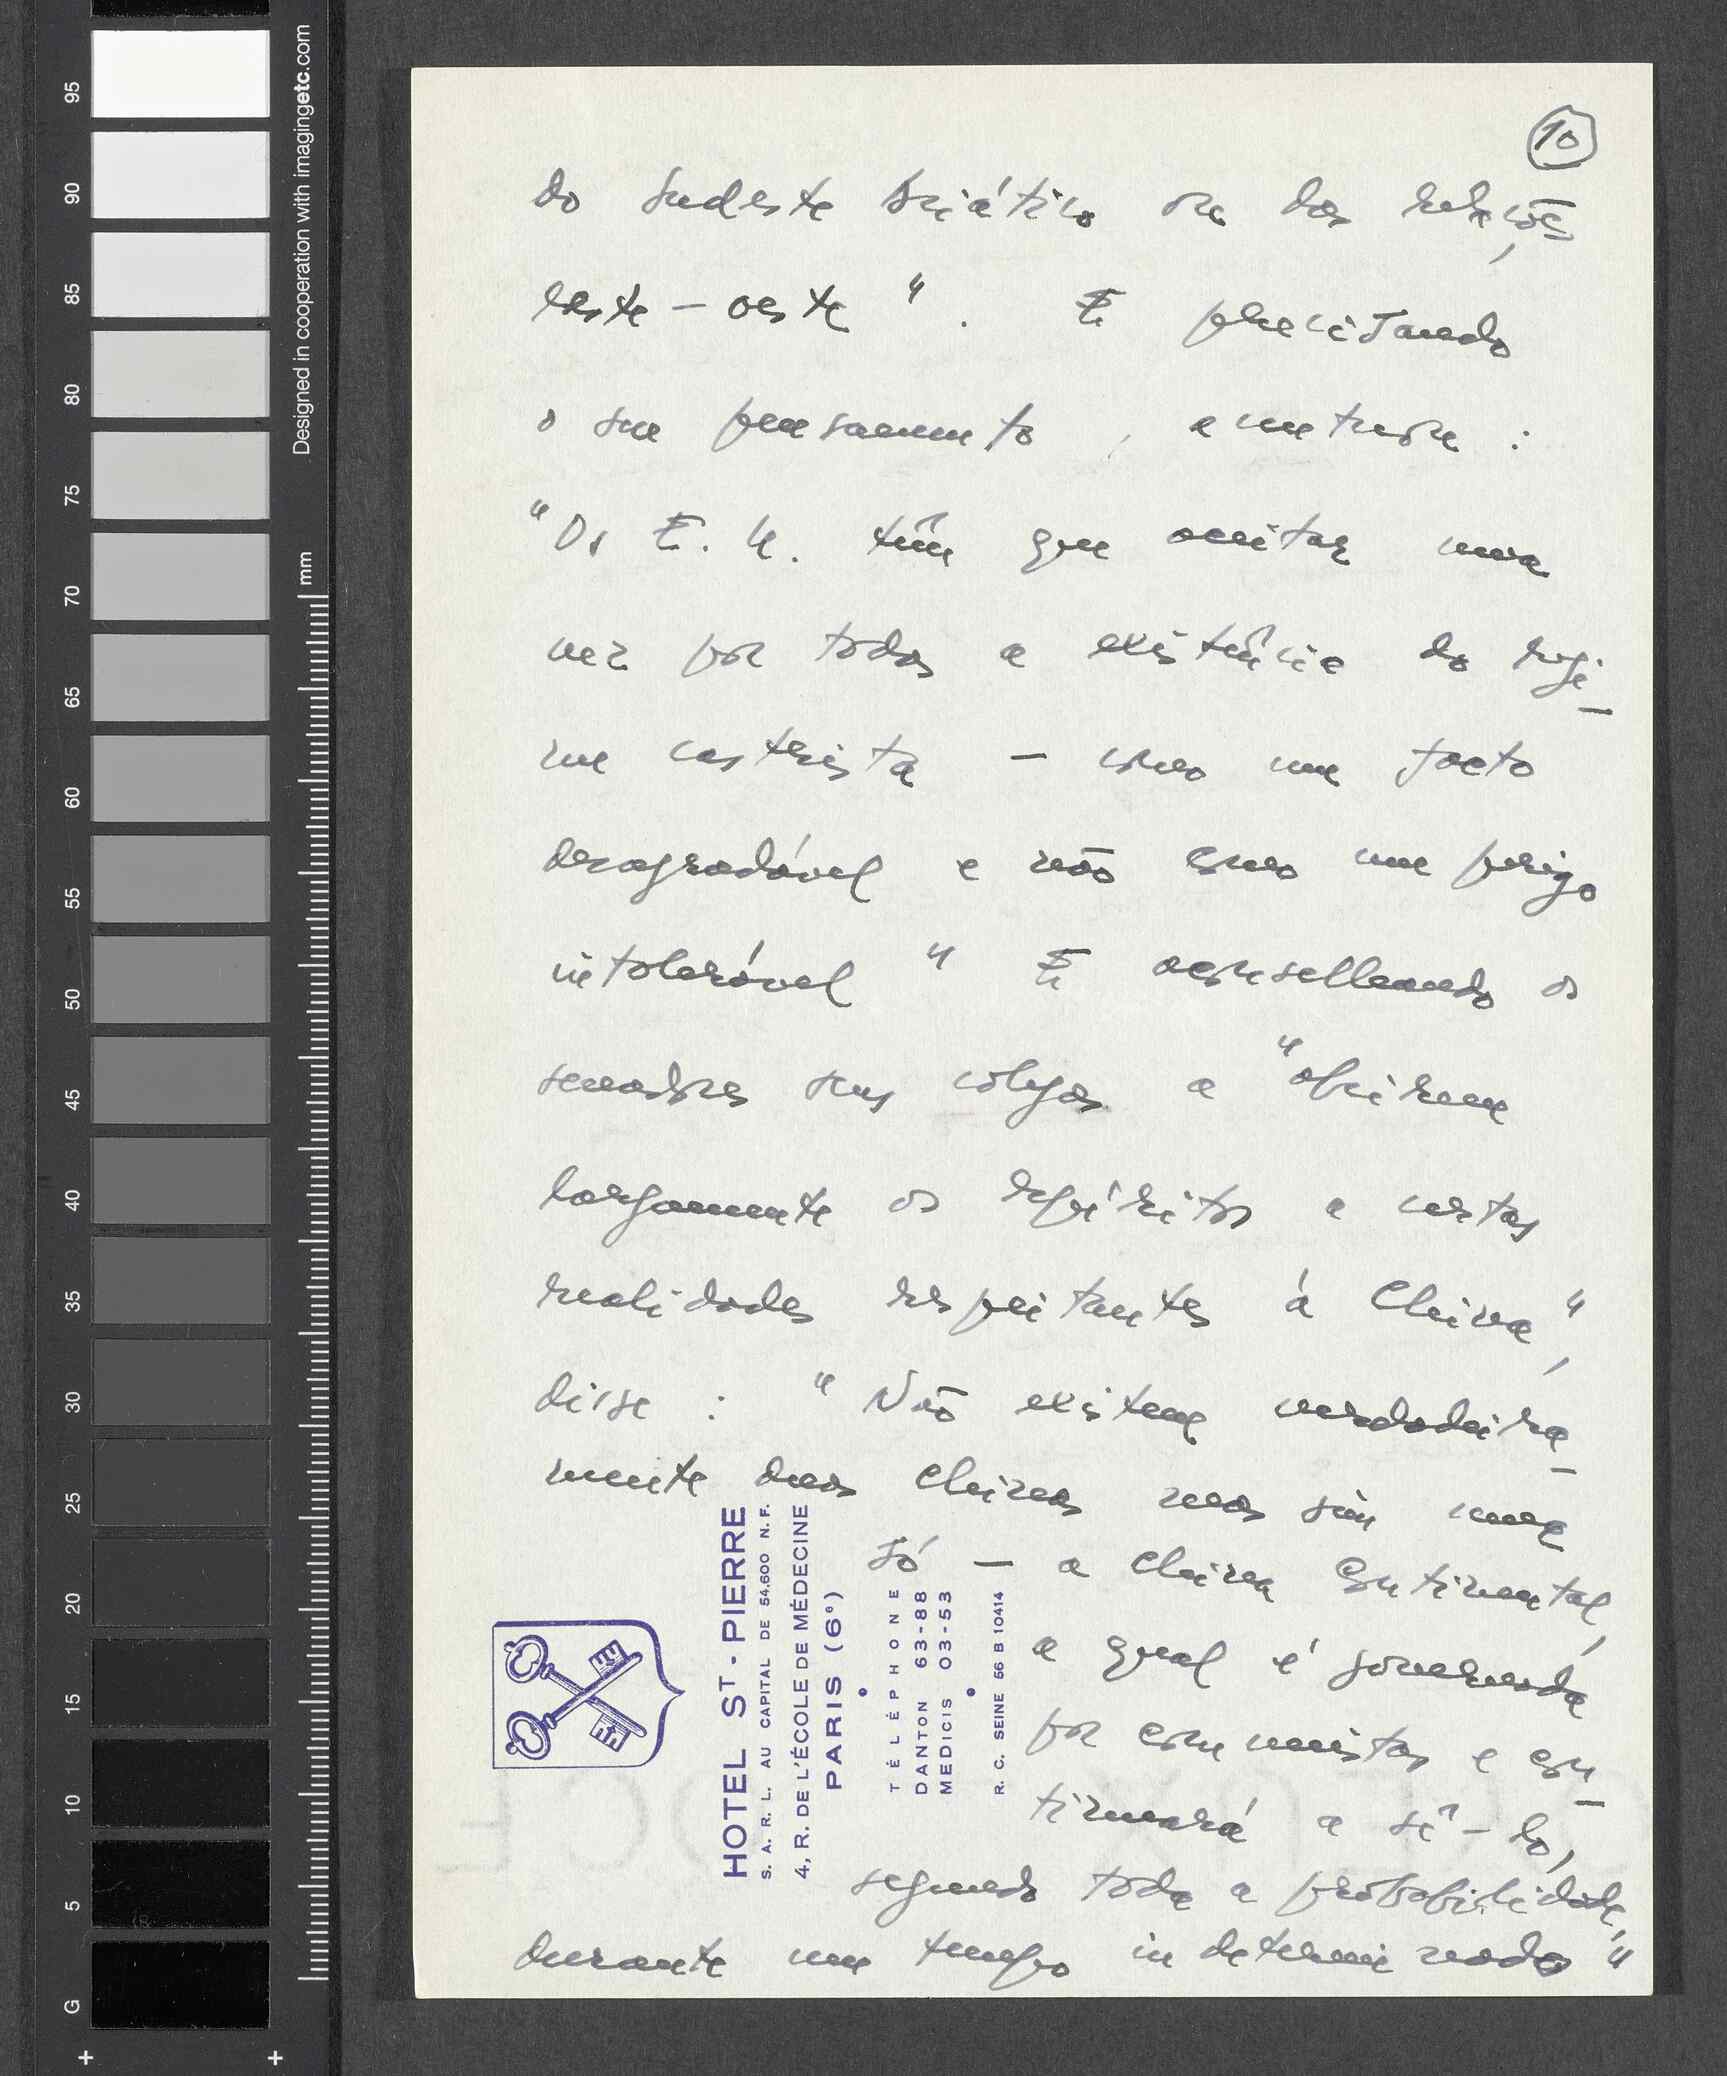 10
do sudeste asiático ou das relações
leste - oeste". E precisando
o seu pensamento, acentuou:
"Os E. U. têm que aceitar uma
vez por todas a existência do regi-
me castrista - como um facto
desagradável e não como um perigo
intolerável" E aconselhando os
senadores seus colegas a "abrirem
largamente os espíritos a certas
realidades respeitantes à China",
disse: "Não existem verdadeira-
mente duas Chinas mas sim uma
só - a China Continental,
a qual é governada
por comunistas e con-
tinuará a sê-lo,
segundo toda a probabilidade,
durante um tempo indeterminado"
HOTEL ST-PIERRE
S. A. R. L. AU CAPITAL DE 54.600 N. F.
4, R. DE L'ÉCOLE DE MÉDECINE
PARIS (6e)
TÉLÉPHONE
DANTON 63-88
MEDICIS 03-53
R. C. SEINE 56 B 10414
Designed in cooperation with imagingetc.com
mm
95
90
85
80
75
70
65
60
55
50
45
40
35
30
25
20
15
10
5
G